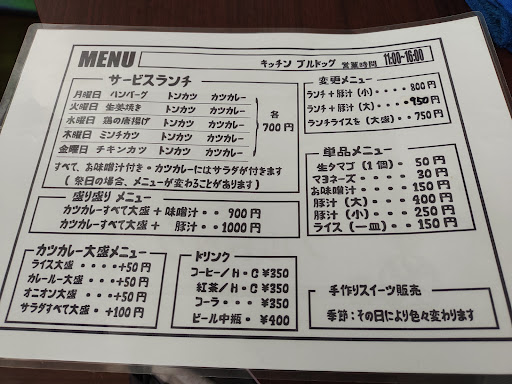 MENU キッチン ブルドッグ 営業時間 11:00-16:00
サービスランチ
月曜日 ハンバーグ トンカツ カツカレー
火曜日 生姜焼き トンカツ カツカレー
水曜日 鶏の唐揚げ トンカツ カツカレー
木曜日 ミンチカツ トンカツ カツカレー
金曜日 チキンカツ トンカツ カツカレー
各700円
すべて、お味噌汁付き・カツカレーにはサラダが付きます
( 祭日の場合、メニューが変わることがあります )
盛り盛り メニュー
カツカレーすべて大盛 + 味噌汁・・900円
カツカレーすべて大盛 + 豚汁・・1000円
カツカレー大盛メニュー
ライス大盛・・・・+50円
カレールー大盛・・・+50円
オニオン大盛・・・・+50円
サラダすべて大盛・+100円
ドリンク
コーヒー/H・C ¥350
紅茶/H・C ¥350
コーラ・・・¥350
ビール中瓶・¥400
変更メニュー
ランチ+豚汁(小)・・・800円
ランチ+豚汁(大)・・・950円
ランチライスを(大盛)・・750円
単品メニュー
生タマゴ(1個)・50円
マヨネーズ・・・・30円
お味噌汁・・・・150円
豚汁(大)・・・400円
豚汁(小)・・・250円
ライス(一皿)・・150円
手作りスイーツ販売
季節:その日により色々変わります